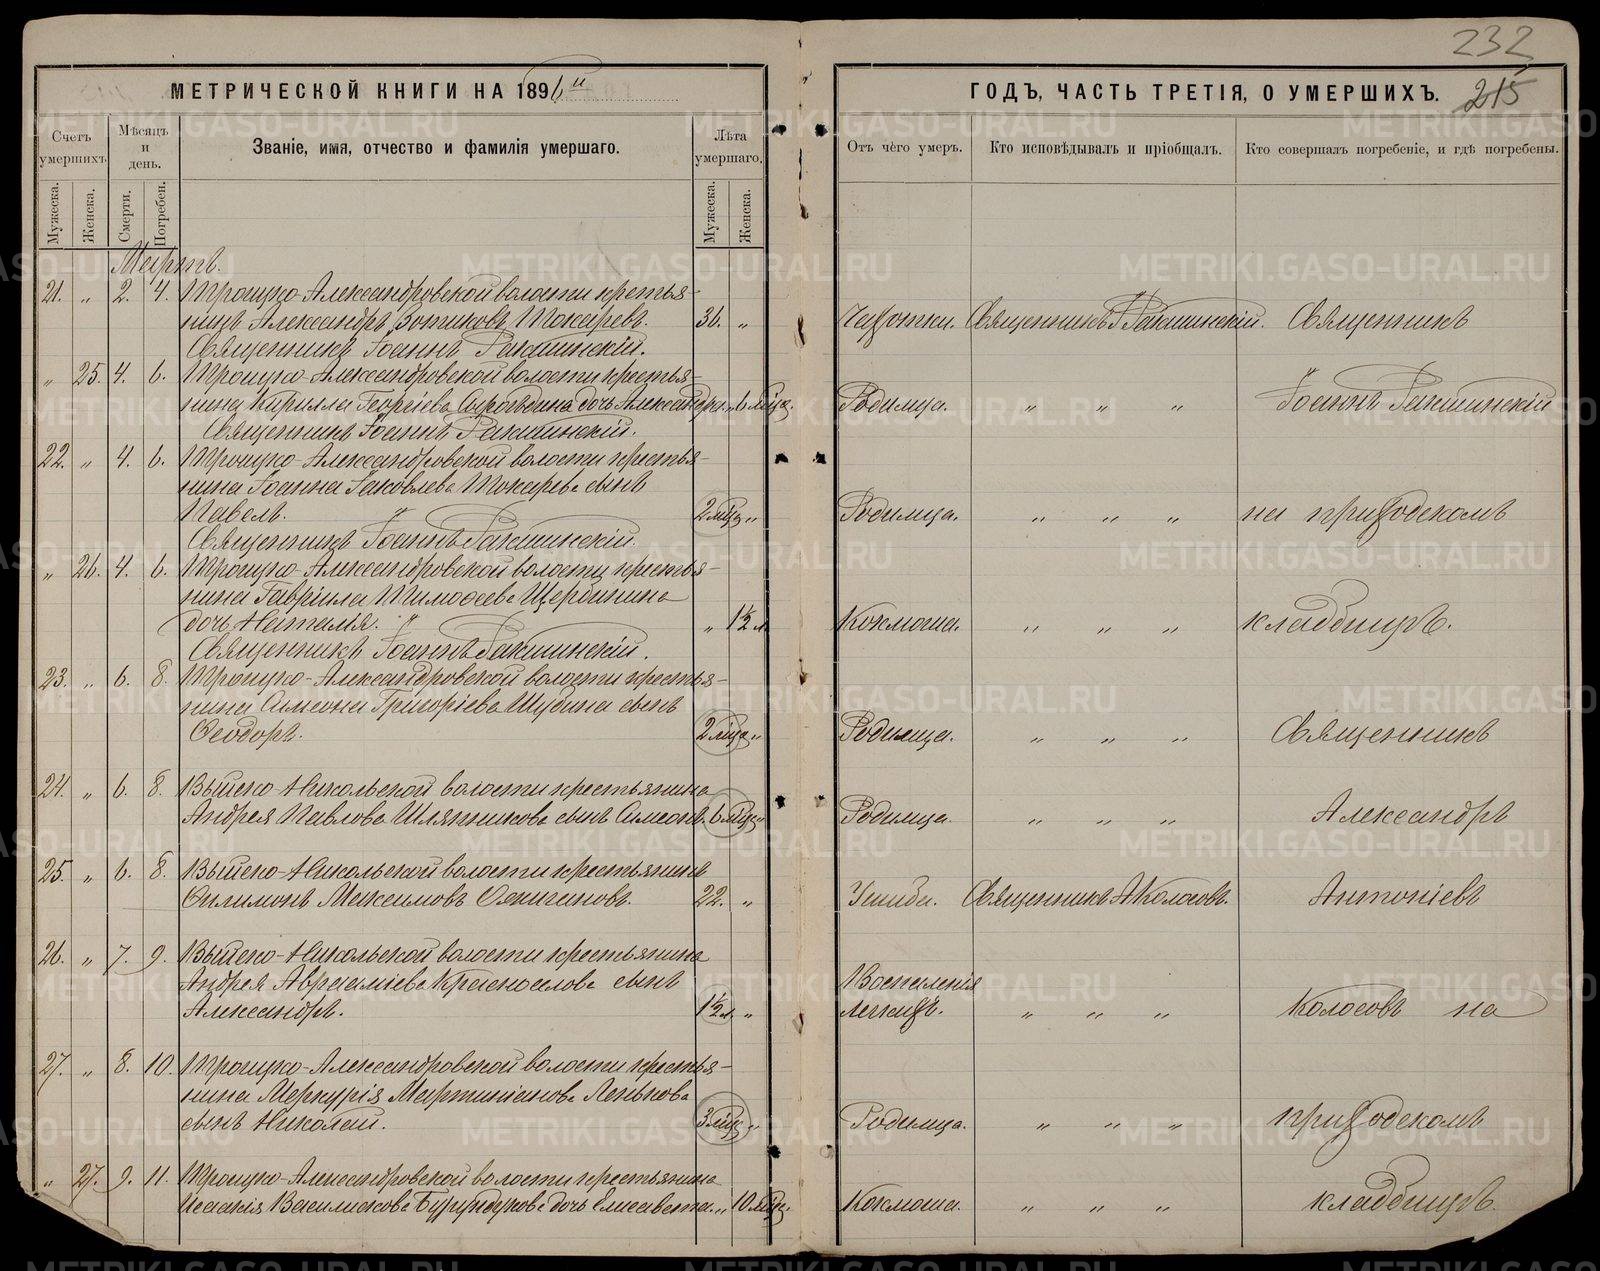 232
215
МЕТРИЧЕСКОЙ КНИГИ НА 1896й
ГОДЪ, ЧАСТЬ ТРЕТІЯ, О УМЕРШИХЪ.
Счетъ умершихъ.
Мѣсяцъ и день.
Званіе, имя, отчество и фамилія умершаго.
Лѣта умершаго.
Отъ чего умеръ.
Кто исповѣдывалъ и пріобщалъ.
Кто совершалъ погребеніе, и гдѣ погребены.
Мужеска. Женска. Смерти. Погребен. Мужеска. Женска.
Мартъ.
21. " 2. 4. Троицко-Александровской волости крестья-
нинъ Александръ Зотиковъ Токаревъ. 36. " Чахотки. Священникъ І Ракшинскій. Священникъ
Священникъ Іоаннъ Ракшинскій.
" 25. 4. 6. Троицко-Александровской волости крестья-
нина Кирилла Георгіева Сыроѣдина дочь Александра. " 6 мѣся. Родимца. " " " Іоаннъ Ракшинскій
Священникъ Іоаннъ Ракшинскій.
22. " 4. 6. Троицко-Александровской волости крестья-
нина Іоанна Яковлева Токарева сынъ
Павелъ. 2 мѣся " Родимца. " " " на приходскомъ
Священникъ Іоаннъ Ракшинскій.
" 26. 4. 6. Троицко-Александровской волости крестья-
нина Гавріила Тимофеева Щербинина
дочь Наталія. " 1½ л. Коклюша. " " " кладбищѣ.
Священникъ Іоаннъ Ракшинскій.
23. " 6. 8. Троицко-Александровской волости крестья-
нина Симеона Григоріева Шубина сынъ
Ѳеодоръ. 2 мѣся " Родимца. " " " Священникъ
24. " 6. 8. Выйско-Никольской волости крестьянина
Андрея Павлова Шляпникова сынъ Симеонъ. 6 мѣся " Родимца. " " " Александръ
25. " 6. 8. Выйско-Никольской волости крестьянинъ
Филимонъ Максимовъ 22. " Ушиби. Священникъ А Колосовъ. Антоніевъ
26. " 7. 9. Выйско-Никольской волости крестьянина
Андрея Авраміева сынъ Воспаленія
Александръ. 1½ л. " легкихъ. " " " Колосовъ на
27. " 8. 10. Троицко-Александровской волости крестья-
нина Меркурія Мартиніанова Ленькова
сынъ Николай. 3 мѣся " Родимца. " " " приходскомъ
" 27. 9. 11. Троицко-Александровской волости крестьянина
Исаакія Василискова Бурундукова дочь Елисавета. " 10 мѣся. Коклюша. " " " кладбищѣ.
METRIKI.GASO-URAL.RU